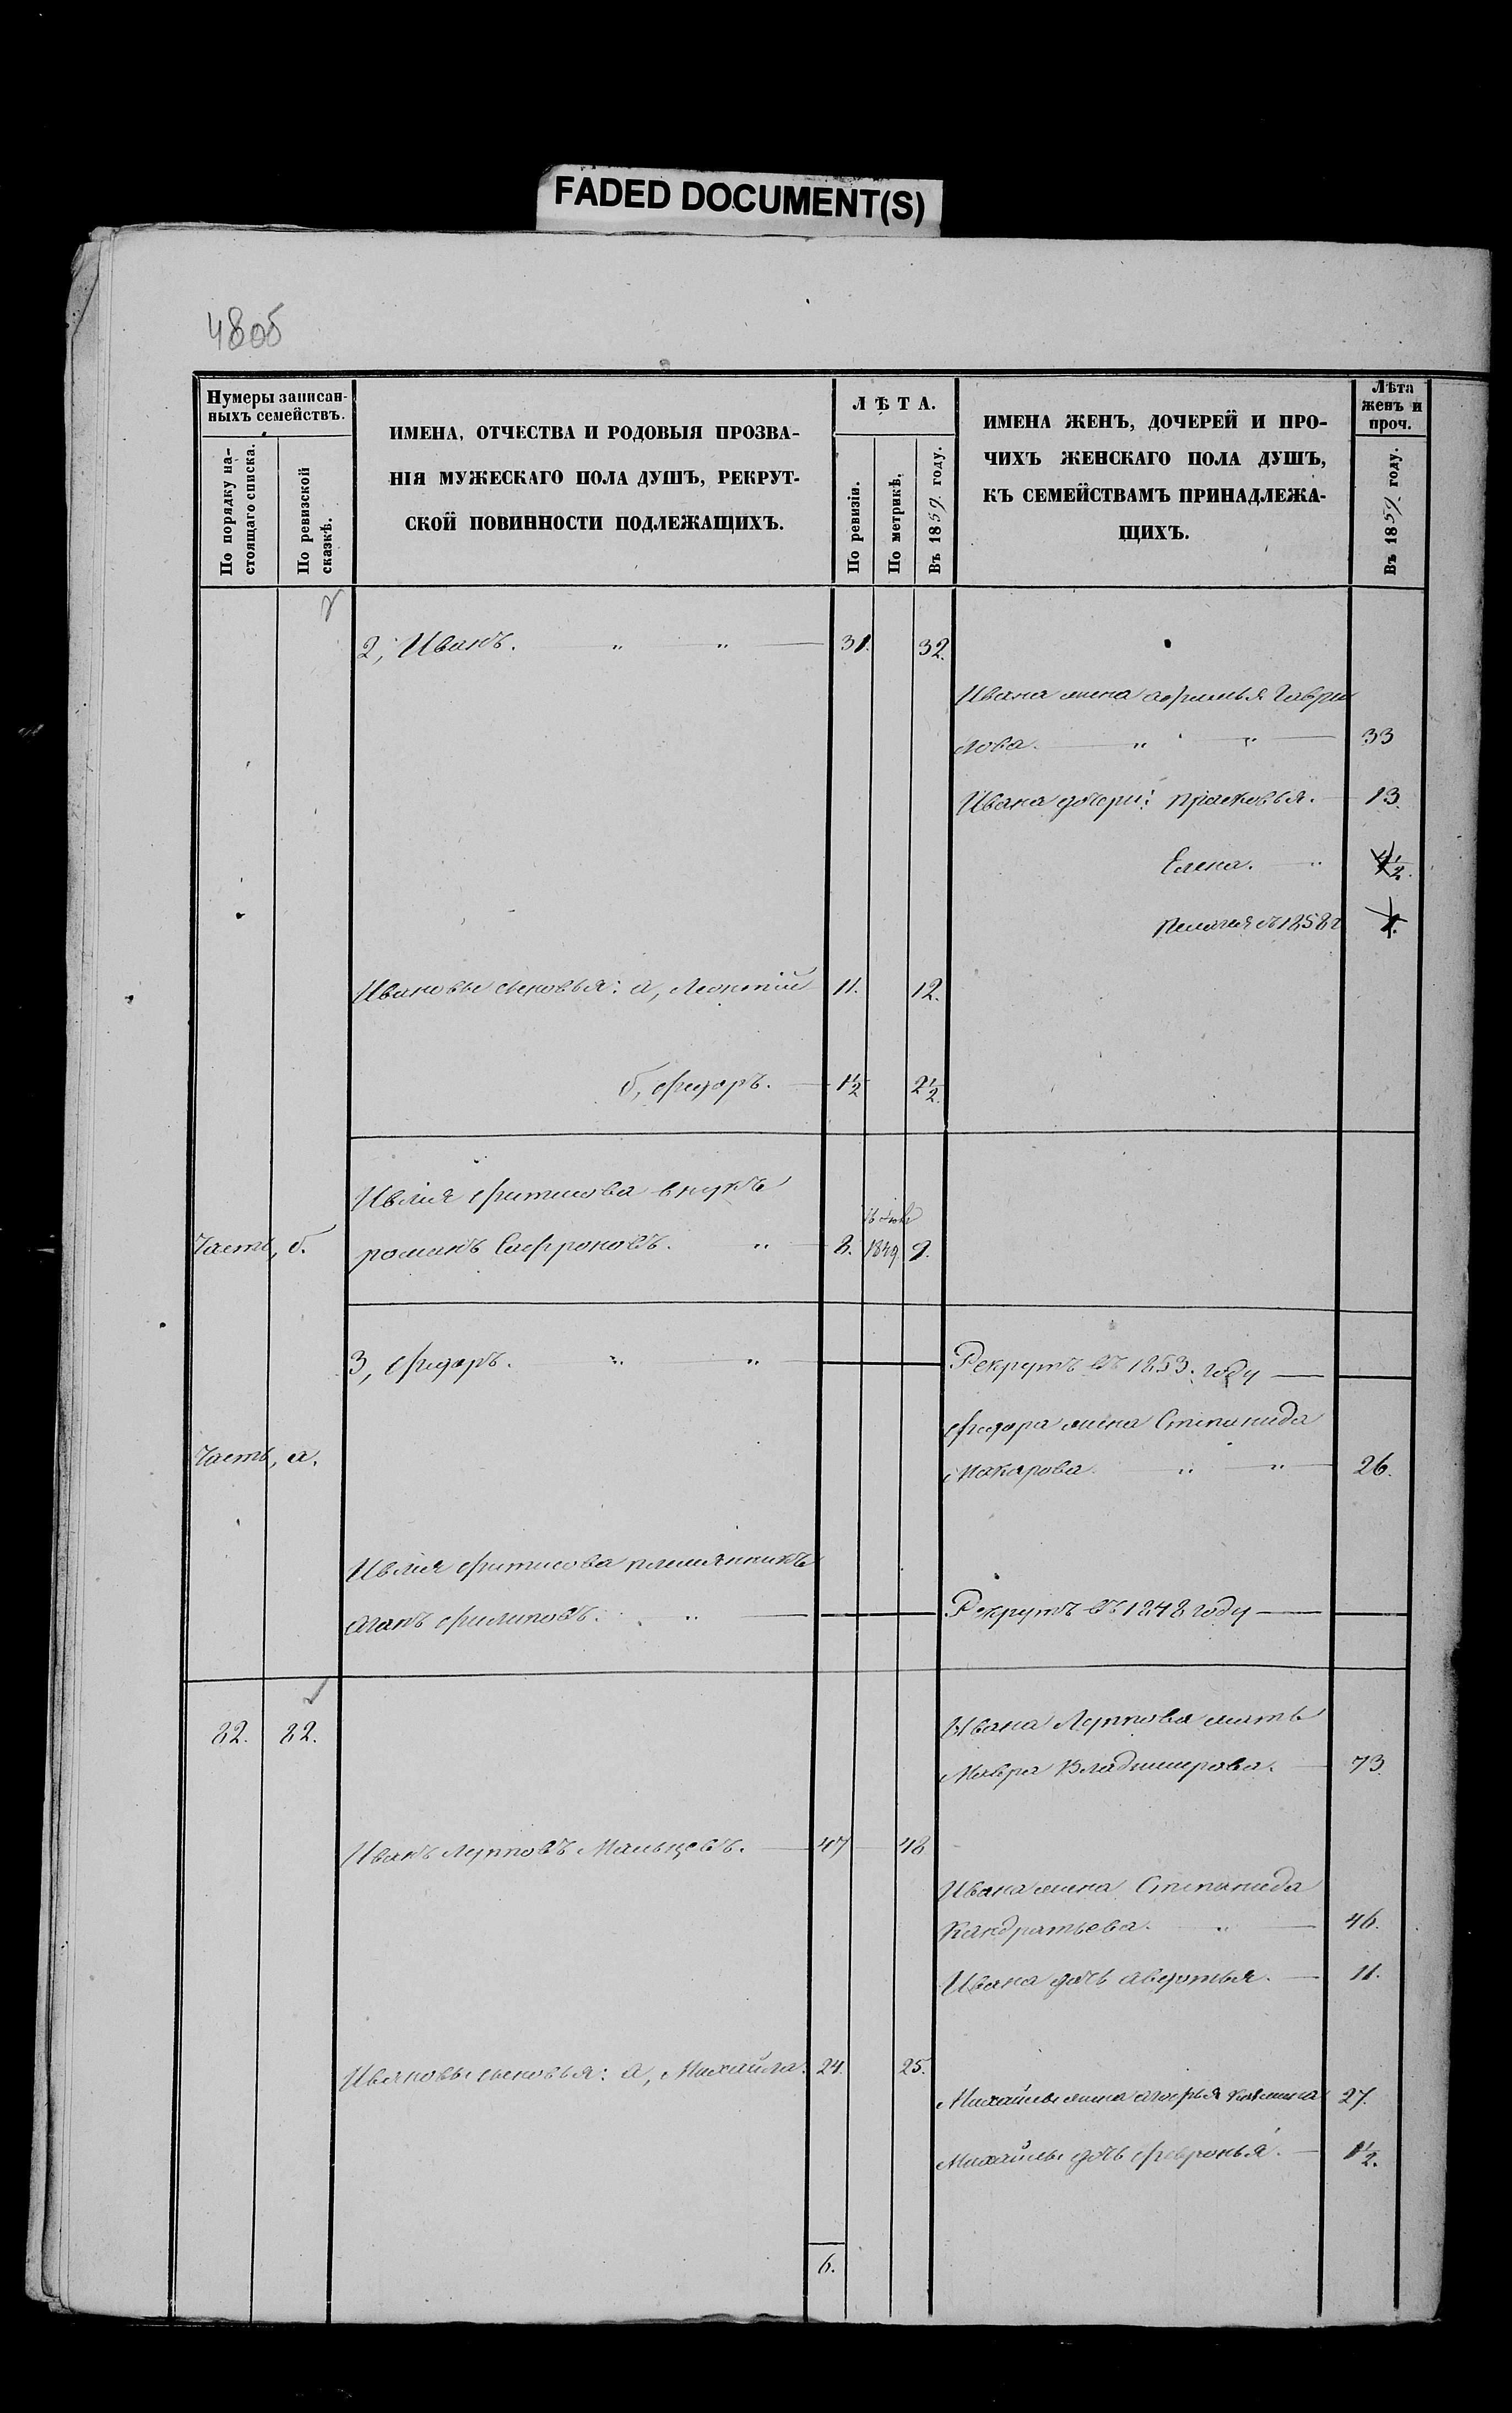 FADED DOCUMENT(S)
48об
Нумеры записан-
ныхъ семействъ.
По порядку на-
стоящаго списка.
По ревизской
сказкѣ.
ИМЕНА, ОТЧЕСТВА И РОДОВЫЯ ПРОЗВА-
НІЯ МУЖЕСКАГО ПОЛА ДУШЪ, РЕКРУТ-
СКОЙ ПОВИННОСТИ ПОДЛЕЖАЩИХЪ.
ЛѢТА.
По ревизіи.
По метрикѣ.
Въ 1859 году.
ИМЕНА ЖЕНЪ, ДОЧЕРЕЙ И ПРО-
ЧИХЪ ЖЕНСКАГО ПОЛА ДУШЪ,
КЪ СЕМЕЙСТВАМЪ ПРИНАДЛЕЖА-
ЩИХЪ.
Лѣта
женъ и
проч.
Въ 1859 году.
2, Иванъ. " " 31. 32.
Ивана жена афимья Гаври
лова. " " 33
Ивана дочери: прасковья. 13.
Елена. "
пелагея съ 1858 г 1.
Ивановы сыновья: а, Леонтій 11. 12.
б, фидоръ. 1½ 2½.
Ивлия фитисова внукъ
Часть, б. романъ Сафроновъ. " 8. 1849 9.
3, фидоръ. " " Рекрутъ въ 1853. году
фидора жена Степанида
Часть, а. Макарова. " " 26.
Ивлия фитисова племянникъ
филиповъ. " Рекрутъ въ 1848 году
82. 82. Ивана Луппова мать
Мавра Владимерова. 73.
Иванъ Лупповъ Мальцевъ. 47 48
Ивана жена Степанида
Кандратьева. " 46.
Ивана дочь авдотья. 11.
Ивановы сыновья: а, Михайла. 24. 25.
Михайлы жена 27.
Михайлы дочь февронья. 1½.
6.